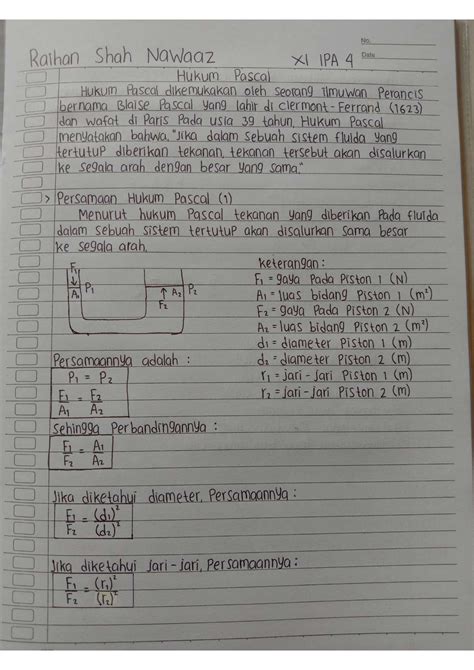 No.
Date
Raihan Shah Nawaaz XI IPA 4
Hukum Pascal
Hukum Pascal dikemukakan oleh seorang ilmuwan Perancis
bernama Blaise Pascal yang lahir di Clermont-Ferrand (1623)
dan wafat di Paris Pada usia 39 tahun, Hukum Pascal
menyatakan bahwa, "Jika dalam sebuah sistem fluida yang
tertutup diberikan tekanan, tekanan tersebut akan disalurkan
ke segala arah dengan besar yang sama."
> Persamaan Hukum Pascal (1)
Menurut hukum Pascal tekanan yang diberikan Pada fluida
dalam sebuah sistem tertutup akan disalurkan sama besar
ke segala arah.
F₁
A₁ P₁ A₂ P₂
F₂
keterangan :
F₁ = gaya Pada Piston 1 (N)
A₁ = luas bidang Piston 1 (m²)
F₂ = gaya Pada Piston 2 (N)
A₂ = luas bidang Piston 2 (m²)
d₁ = diameter Piston 1 (m)
d₂ = diameter Piston 2 (m)
r₁ = jari-jari Piston 1 (m)
r₂ = jari-jari Piston 2 (m)
Persamaannya adalah :
P₁ = P₂
F₁ = F₂
A₁ A₂
sehingga Perbandingannya :
F₁ = A₁
F₂ A₂
Jika diketahui diameter, Persamaannya :
F₁ = (d₁)²
F₂ (d₂)²
Jika diketahui jari-jari, Persamaannya :
F₁ = (r₁)²
F₂ (r₂)²